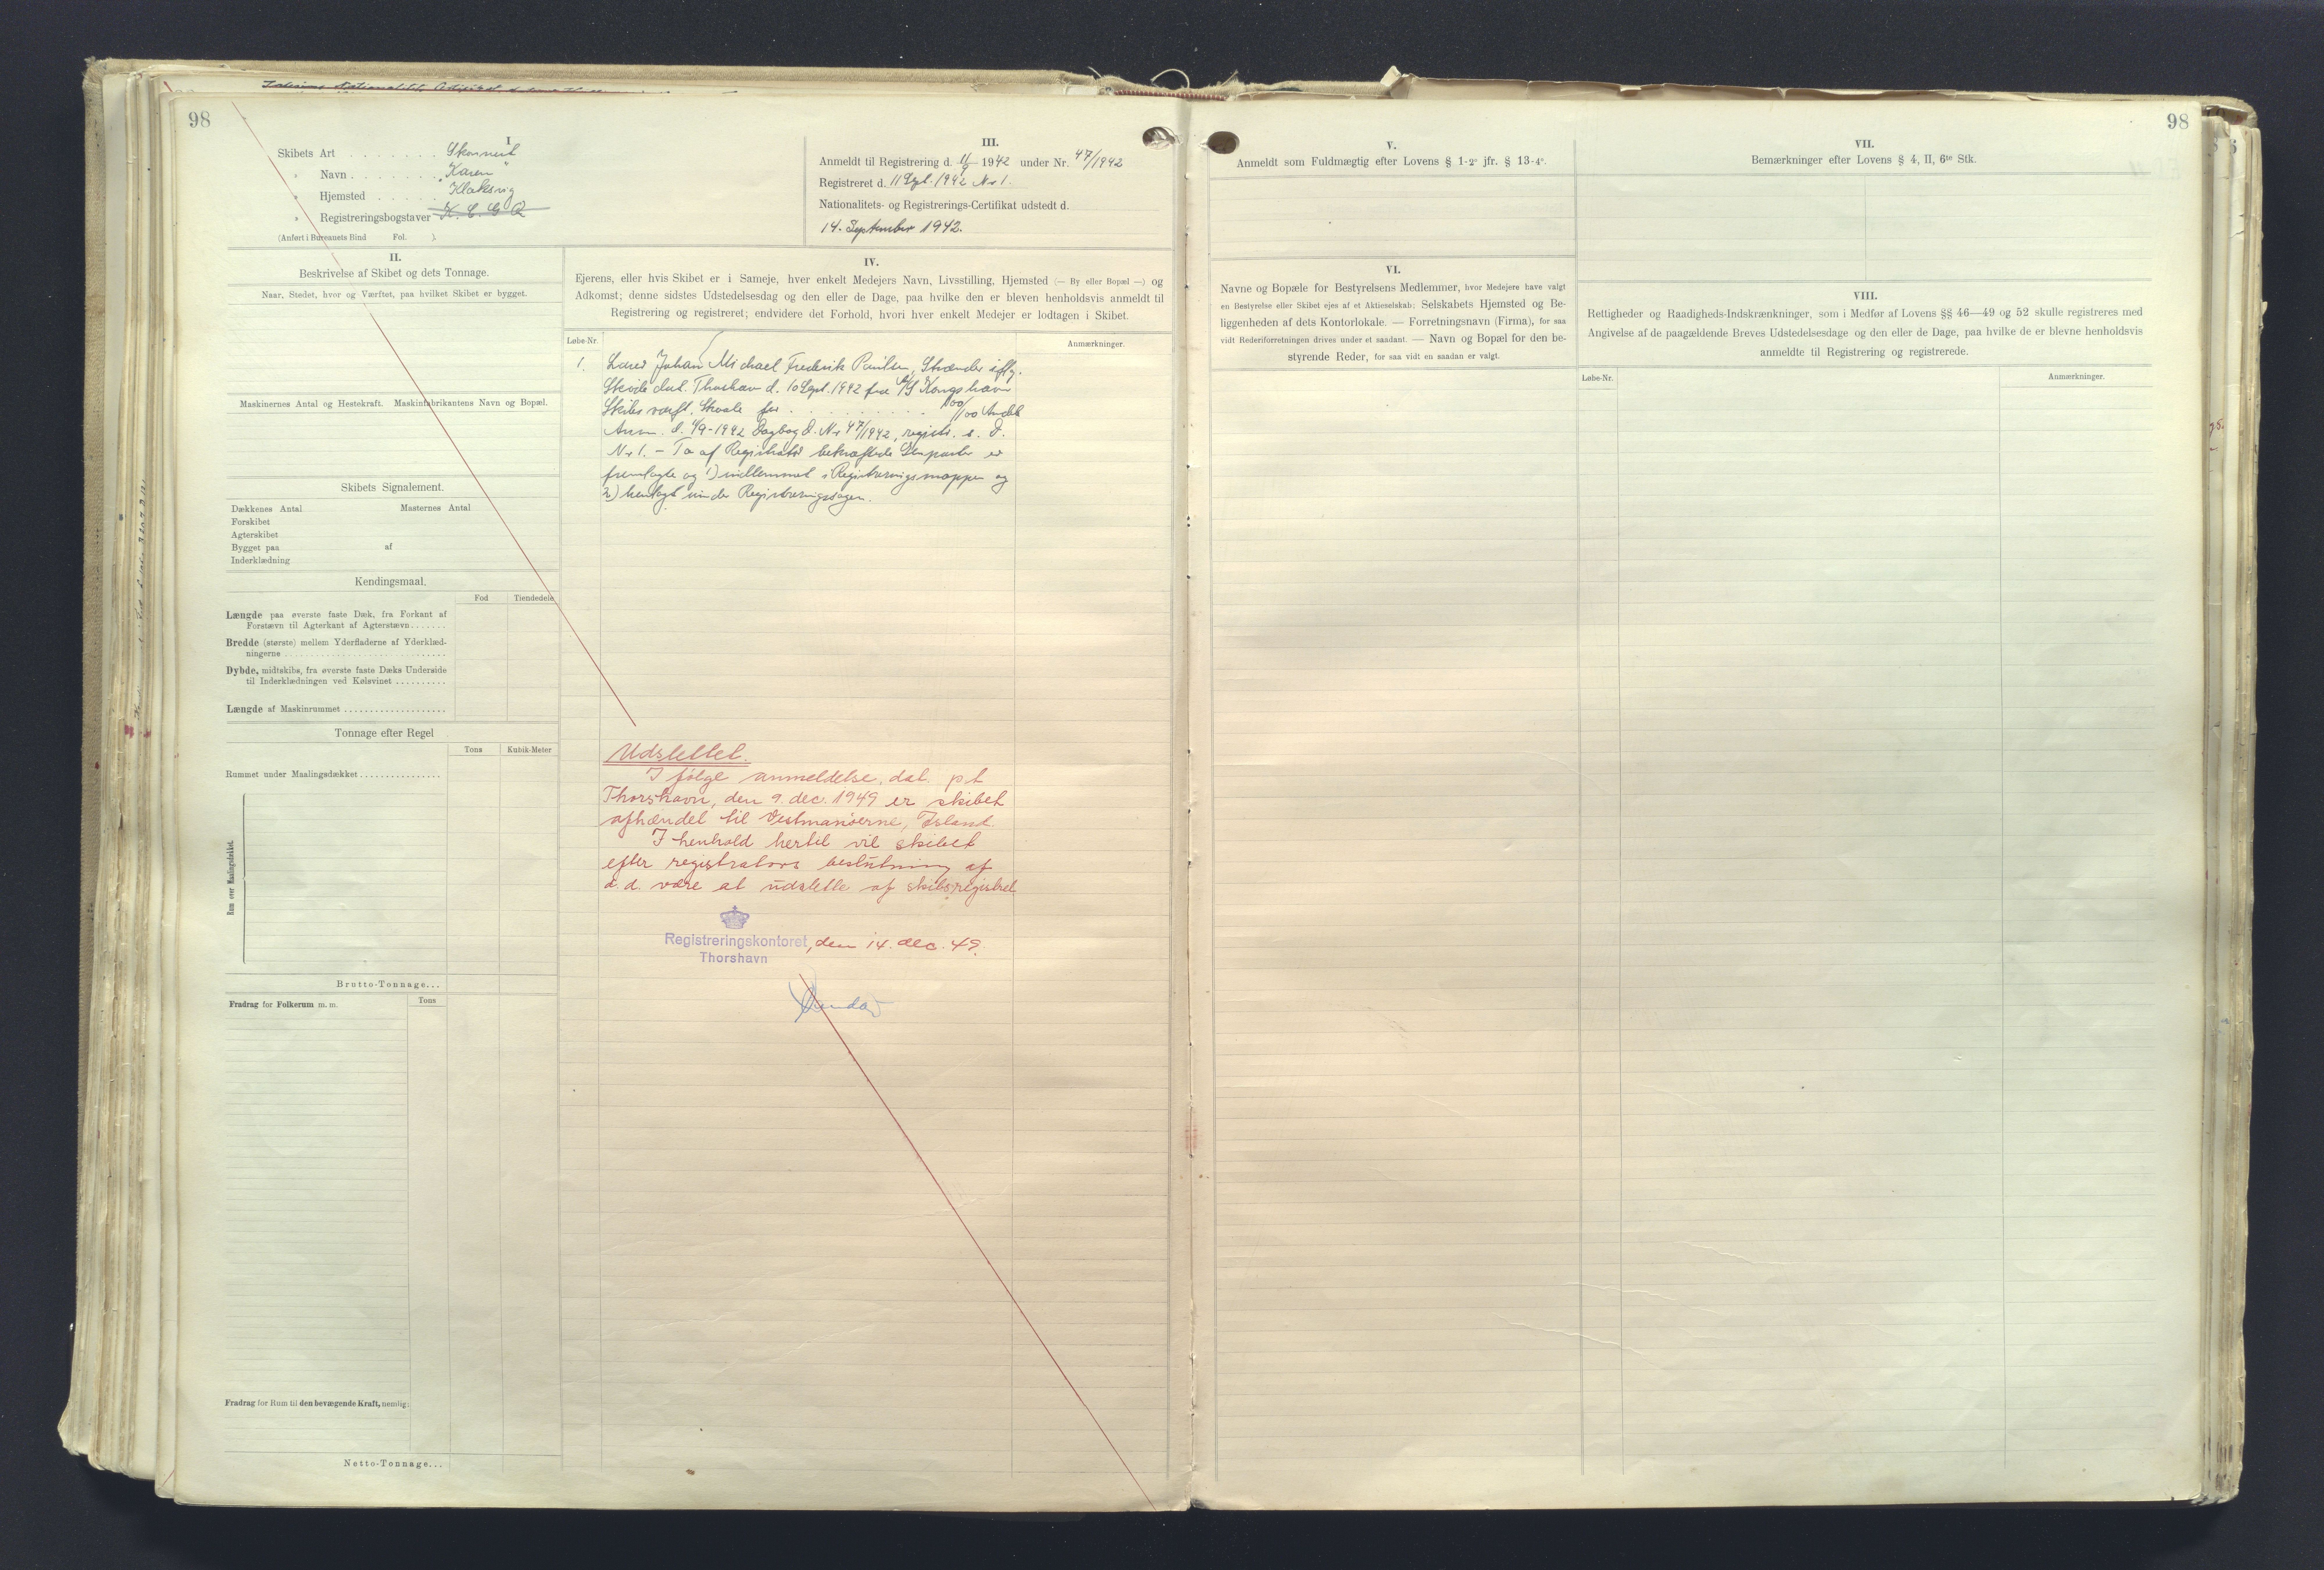 98
I
Skibets Art . . . . . . . Skonnert
" Navn . . . . . . . "Karen"
" Hjemsted . . . . . Klaksvig
" Registreringsbogstaver
(Anført i Bureauets Bind Fol. ).
II.
Beskrivelse af Skibet og dets Tonnage.
Naar, Stedet, hvor og Værftet, paa hvilket Skibet er bygget.
Maskinernes Antal og Hestekraft. Maskinfabrikantens Navn og Bopæl.
Skibets Signalement.
Dækkenes Antal Masternes Antal
Forskibet
Agterskibet
Bygget paa af
Inderklædning
Kendingsmaal.
Fod Tiendedele
Længde paa øverste faste Dæk, fra Forkant af
Forstævn til Agterkant af Agterstævn.......
Bredde (største) mellem Yderfladerne af Yderklæd-
ningerne ..............................
Dybde, midtskibs, fra øverste faste Dæks Underside
til Inderklædningen ved Kølsvinet ..........
Længde af Maskinrummet ....................
Tonnage efter Regel
Tons Kubik-Meter
Rummet under Maalingsdækket................
Rum over Maalingsdækket.
Brutto-Tonnage...
Fradrag for Folkerum m. m. Tons
Fradrag for Rum til den bevægende Kraft, nemlig:
Netto-Tonnage...
III.
Anmeldt til Registrering d. 11/9 1942 under Nr. 47/1942
Registreret d. 11 Sept. 1942 Nr 1.
Nationalitets- og Registrerings-Certifikat udstedt d.
14. September 1942.
IV.
Ejerens, eller hvis Skibet er i Sameje, hver enkelt Medejers Navn, Livsstilling, Hjemsted (— By eller Bopæl —) og
Adkomst; denne sidstes Udstedelsesdag og den eller de Dage, paa hvilke den er bleven henholdsvis anmeldt til
Registrering og registreret; endvidere det Forhold, hvori hver enkelt Medejer er lodtagen i Skibet.
Løbe-Nr. Anmærkninger.
1. Lærer Johan Michael Frederik Poulsen, Strænder iflg.
Skøde dat. Thorshavn d. 10 Sept. 1942 fra A/S Kongshavn
Skibsværft, Skaale for . . . . . . . . . . 100/100 Andele
Anm. d. 11/9-1942 Dagbog d. Nr 47/1942, registr. s. D.
Nr 1. - To af Registrator bekræftede Genparter er
fremlagte og 1) indlemmet i Registreringsmappen og
2) henlagt under Registreringssagen.
Udslettet.
I følge anmeldelse, dat. pt
Thorshavn, den 9. dec. 1949 er skibet
afhændet til Vestmanøerne, Island.
I henhold hertil vil skibet
efter registrators beslutning af
d. d. være at udslette af skibsregistret
Registreringskontoret, den 14. dec. 49.
Thorshavn
98
V.
Anmeldt som Fuldmægtig efter Lovens § 1-2° jfr. § 13-4°.
VI.
Navne og Bopæle for Bestyrelsens Medlemmer, hvor Medejere have valgt
en Bestyrelse eller Skibet ejes af et Aktieselskab; Selskabets Hjemsted og Be-
liggenheden af dets Kontorlokale. — Forretningsnavn (Firma), for saa
vidt Rederiforretningen drives under et saadant. — Navn og Bopæl for den be-
styrende Reder, for saa vidt en saadan er valgt.
VII.
Bemærkninger efter Lovens § 4, II, 6te Stk.
VIII.
Rettigheder og Raadigheds-Indskrænkninger, som i Medfør af Lovens §§ 46—49 og 52 skulle registreres med
Angivelse af de paagældende Breves Udstedelsesdage og den eller de Dage, paa hvilke de er blevne henholdsvis
anmeldte til Registrering og registrerede.
Løbe-Nr. Anmærkninger.